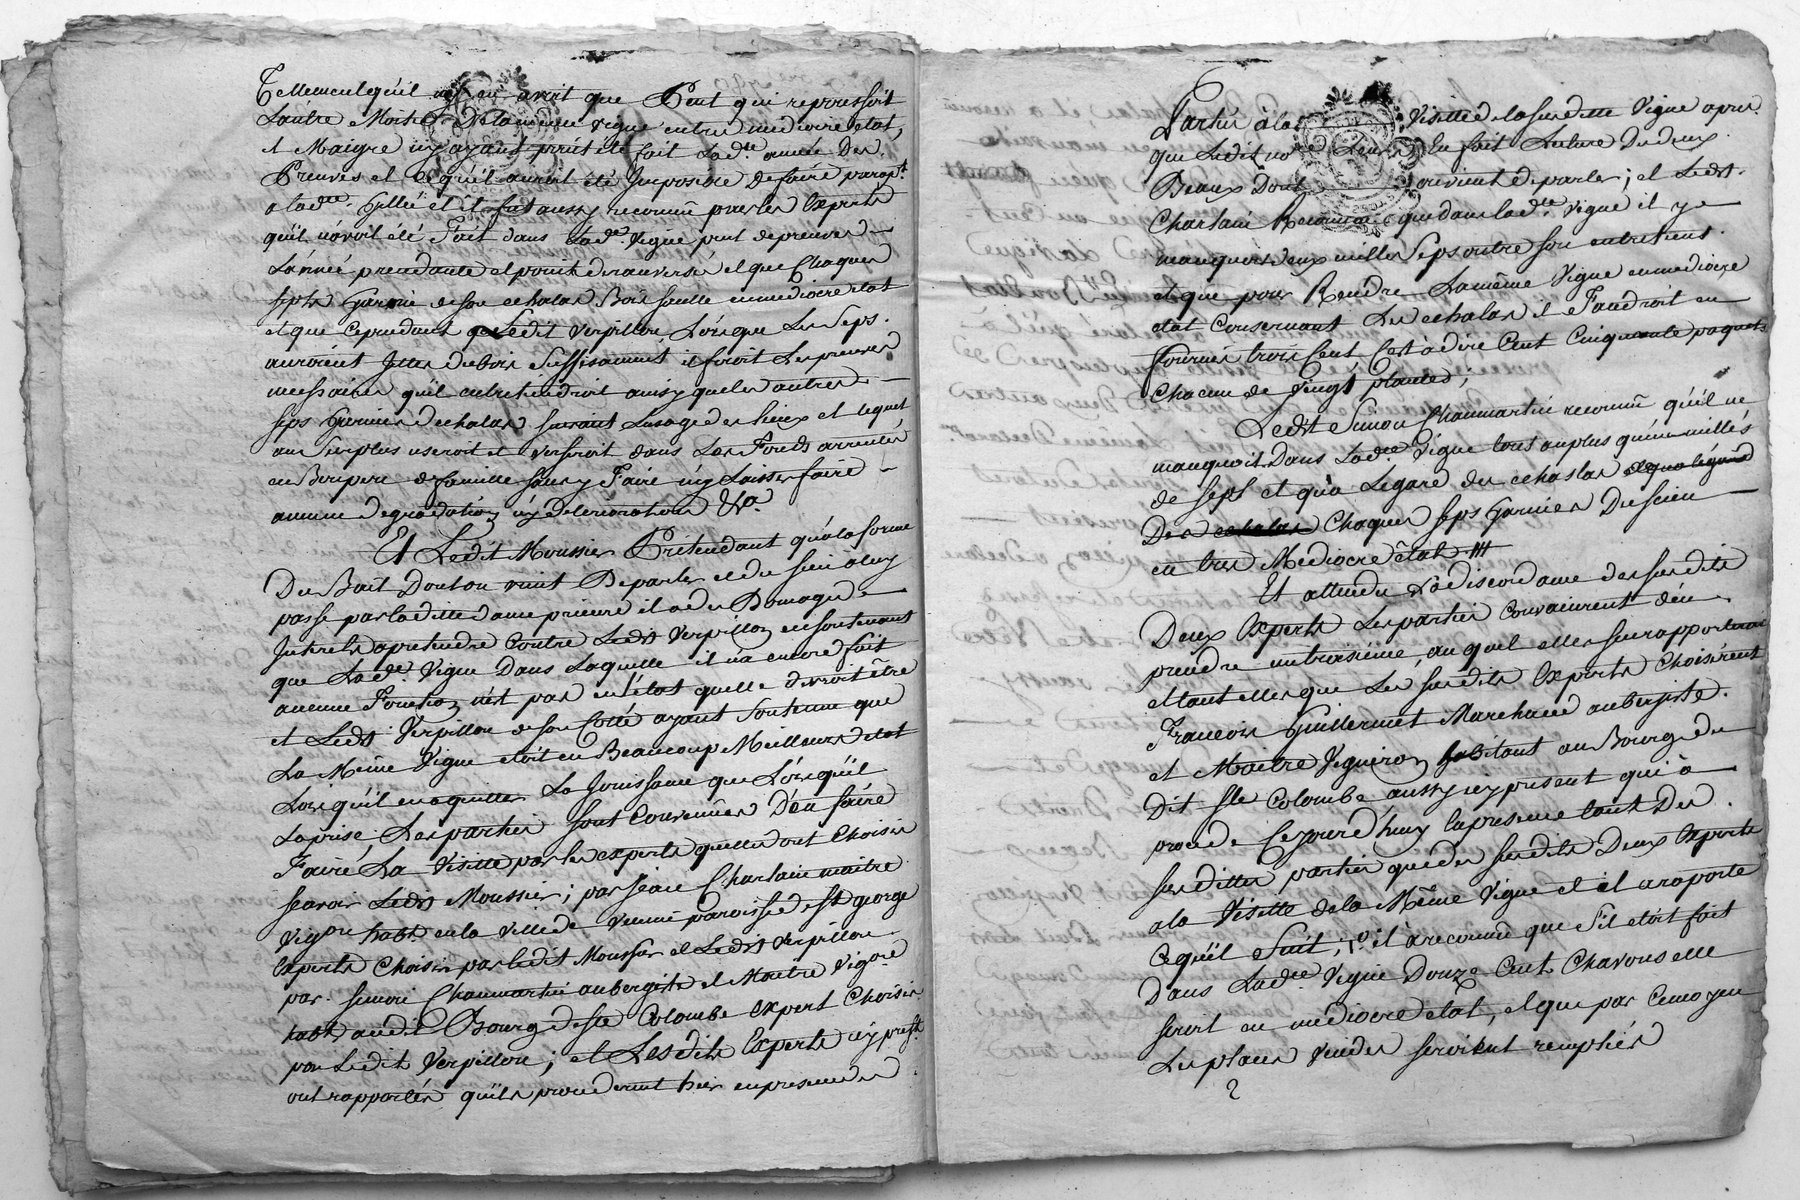 Tellement qu'il n'y en avoit que Peut qui reponssoit
L'autre Moitié De la même vigne entre mediocre état,
et Maigre n'y ayant point été fait Lad.te année Des
Preuves et qu'il auroit été Imposible de faire parap.t
a lad.te et il fut aussy reconnû par les Experts
qu'il n'avoit été Fait dans Lad.te Vigne peut de preuves
L'année precedante et point de ranversé et que Chaques
seps Garnie de son echalas Bois saulle en mediocre etat
et que cependant Ledit Verpillon, Lorsque Les Seps
auroient Jettes du bois Suffisamment il feroit Les preuves
necessaires qu'il entretiendroit ainsy que les autres
seps Garnies dechalas suivant Lusage des lieux et lequel
au Surplus useroit et verseroit dans Les Fonds arrentés
en Bon pere de famille sans y Faire n'y Laisser faire
aucune degradation n'y deterioration &a.
Et Ledit Moussier Pretendant qu'a la forme
Du Bail Dont on vient De parler et du sien a luy
passé par laditte dame prieure il a des Domages
Interets a pretendre Contre Ledit Verpillon en soutenant
que Lad.te Vigne Dans Laquelle il n'a encore fait
aucune Fonction n'est pas en l'état quelle devroit être
et Ledit Verpillon de son Cotté ayant Soutenu que
La Même Vigne etoit en Beaucoup Meilleurs etat
Lorsqu'il en a quittes La Jouissance que Lorsqu'il
La prise, Les parties sont Convenües D'en faire
Faire La Visitte par les experts quelles ont Choisis
scavoir Ledit Moussier; par Jean Charlain maitre
Vig.on habt. en la ville de vienne paroisse de St george
Experts Choisis par ledit Moussier et Ledit Verpillon
par Simon Chaumartin aubergiste et Maitre Vig.on
habt. audit Bourg de ste Colombe expert Choisis
par Ledit Verpillon; et Lesdits Experts icy pres.t
ont rapportés qu'ils procederent hier en presence des
Parties a la Visitte de la susditte Vigne apres
que Ledit no Leurs En fait Lecture Des deux
Beaux Dont on vient de parler; et Ledit
Charlain Reconnoit que dans lad.te Vigne il y a
manquer deux milles Seps outre son entretient
et que pour Rendre La même Vigne en mediocre
etat Concernant Les echalas il Faudroit en
fournir trois Cent C'est a dire Cent Cinquante paquets
Chacun de vingt plantes;
Ledit Simon Chaumartin reconnû qu'il ne
manquoit Dans Lad.te Vigne tout au plus qu'un milles
de seps et qu'a Legard des echalas et qua legard
Des echalas Chaques seps Garnies Du sien
en tres Mediocre état.
Et attendu La discordance des susdits
Deux Experts Les parties Convainrent d'en
prendre un troisième, au quel elles sen rapporteroi
et tant elles que Les susdits Experts Choisirent
Francois Guillermet Marchand aubergiste
et Maitre Vigneron habitant au Bourg du
Dit Ste Colombe aussy icy present qui a
procedé Cejourd'huy en presence tant Des
susdittes parties que des susdits Deux Experts
a la Visitte de la Même Vigne et il a raporte
Ce qu'il Suit; il a reconnu que S'il etoit fait
Dans Lad.te Vigne Douze Cent Chavons elle
seroit en mediocre etat, et que par Ce moyen
Les places vuides seroient remplies
2